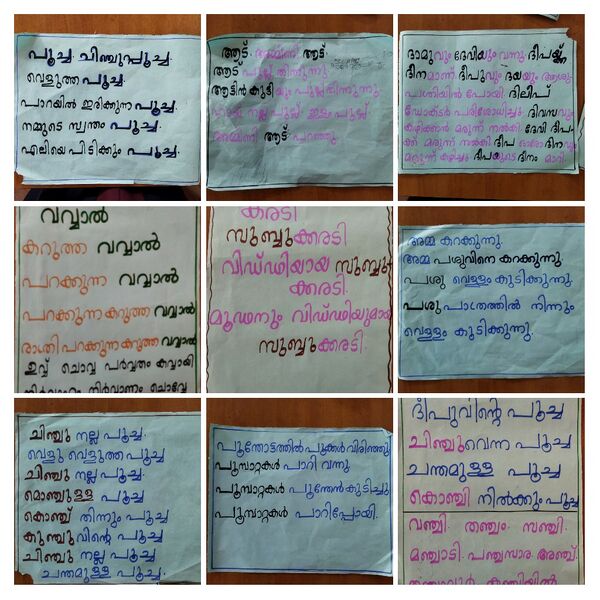 പൂച്ച ചിഞ്ചുപ്പൂച്ച.
വെളുത്ത പൂച്ച.
പാറയിൽ ഇരിക്കുന്ന പൂച്ച.
നമ്മുടെ സ്വന്തം പൂച്ച.
എലിയെ പിടിക്കും പൂച്ച.
ആട്. അമ്മിണി ആട്.
ആട് പുല്ല് തിന്നുന്നു.
ആട്ടിൻ കുട്ടിയും പുല്ല് തിന്നുന്നു.
നല്ല പുല്ല് ഇളം പുല്ല്
അമ്മിണി ആട് പറഞ്ഞു.
ദാമുവും ദേവിയും വന്നു. ദീപയ്ക്ക്
ദീനമാണ് ദീപുവും ദയയും ആശു-
പത്രിയിൽ പോയി. ദിലീപ്
ഡോക്ടർ പരിശോധിച്ചു. ദിവസവും
കഴിക്കാൻ മരുന്ന് നൽകി. ദേവി ദീപ-
യ്ക്ക് മരുന്ന് നൽകി ദീപ ഓരോ ദിനവും
മരുന്ന് കഴിച്ചു. ദീപയുടെ ദീനം മാറി.
വവ്വാൽ
കറുത്ത വവ്വാൽ
പറക്കുന്ന വവ്വാൽ
പറക്കുന്ന കറുത്ത വവ്വാൽ
രാത്രി പറക്കുന്ന കറുത്ത വവ്വാൽ
ഇവ്വ് ചൊവ്വ പർവ്വതം കവ്വായി
നിർവാഹം നിർവാണം ചൊവ്വേ
കരടി
സുബ്ബുക്കരടി
വിഡ്ഢിയായ സുബ്ബു
ക്കരടി.
മൂഢനും വിഡ്ഢിയുമായ
സുബ്ബുക്കരടി.
അമ്മ കറക്കുന്നു.
അമ്മ പശുവിനെ കറക്കുന്നു.
പശു വെള്ളം കുടിക്കുന്നു.
പശു പാത്രത്തിൽ നിന്നും
വെള്ളം കുടിക്കുന്നു.
ചിഞ്ചു നല്ല പൂച്ച.
വെളു വെളുത്ത പൂച്ച
ചിഞ്ചു നല്ല പൂച്ച.
മൊഞ്ചുള്ള പൂച്ച
കൊഞ്ച് തിന്നും പൂച്ച
കുഞ്ചുവിന്റെ പൂച്ച
ചിഞ്ചു നല്ല പൂച്ച
ചന്തമുള്ള പൂച്ച.
പൂന്തോട്ടത്തിൽ പൂക്കൾ വിരിഞ്ഞു.
പൂമ്പാറ്റകൾ പാറി വന്നു.
പൂമ്പാറ്റകൾ പൂന്തേൻ കുടിച്ചു.
പൂമ്പാറ്റകൾ പാറിപ്പോയി.
ദീപുവിന്റെ പൂച്ച
ചിഞ്ചുവെന്ന പൂച്ച
ചന്തമുള്ള പൂച്ച
കൊഞ്ചി നിൽക്കും പൂച്ച
വഞ്ചി. തഞ്ചം. സഞ്ചി.
മഞ്ചാടി. പഞ്ചസാര അഞ്ച്.